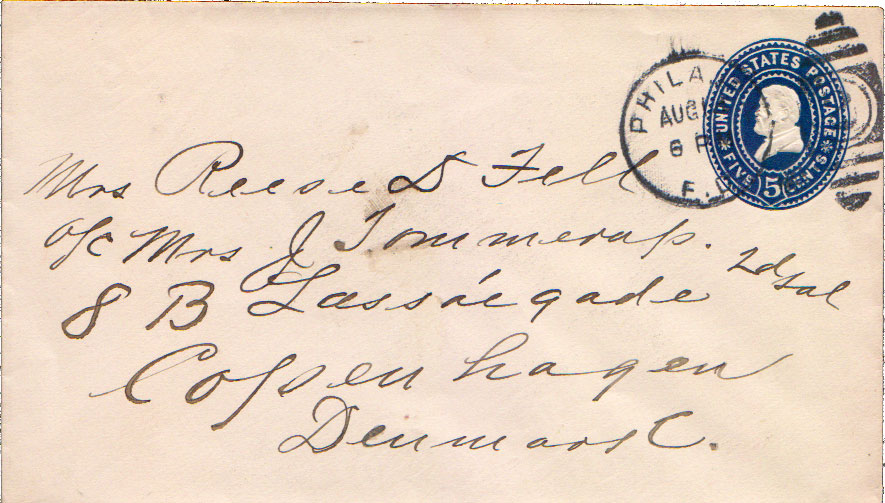 PHILA.
AUG
6 P
F.
UNITED STATES POSTAGE
FIVE 5 CENTS
Mrs Reese D Fell
o/c Mrs J Tommerup.
8 B Læssøegade 2d Sal
Copenhagen
Denmark.